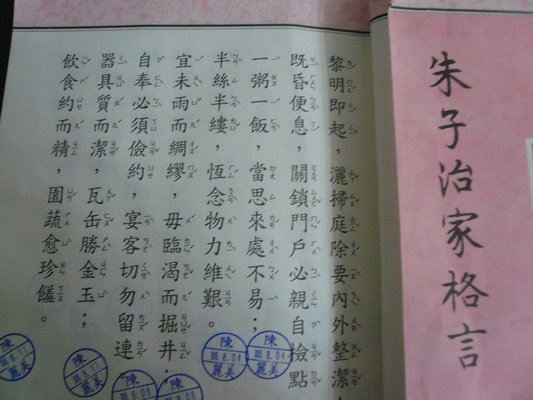 朱子治家格言
黎明即起，灑掃庭除要內外整潔；
既昏便息，關鎖門戶必親自檢點。
一粥一飯，當思來處不易；
半絲半縷，恆念物力維艱。
宜未雨而綢繆，毋臨渴而掘井。
自奉必須儉約，宴客切勿留連。
器具質而潔，瓦缶勝金玉；
飲食約而精，園蔬愈珍饈。
陳
8.04
麗美
陳
8.04
麗美
陳
麗美
陳
8.11
麗美
陳
8.08
陳
8.08